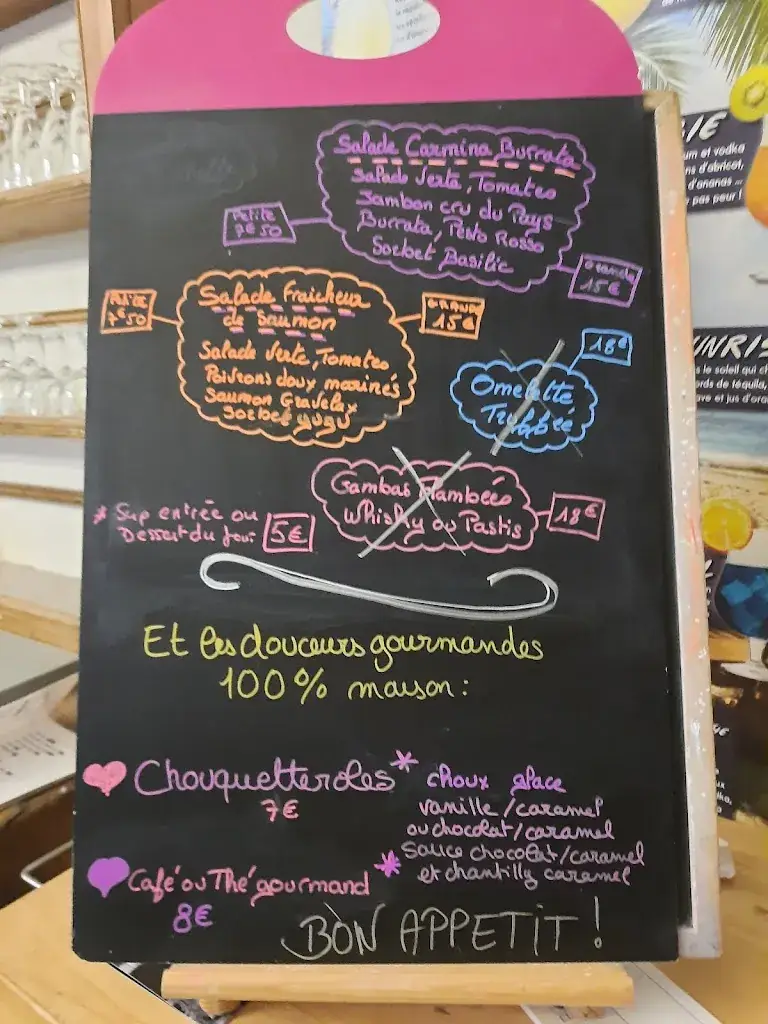 Salade Carmina Burrata
Salade Verte, Tomates
Jambon cru du Pays
Burrata, Pesto Rosso
Sorbet Basilic
Petite
7€50
Grande
15€
Salade Fraicheur
de Saumon
Salade Verte, Tomates
Poivrons doux marinés
Saumon Gravelax
Sorbet yuzu
Petite
7€50
Grande
15€
18€
Omelette
Truffée
Gambas Flambées
Whisky ou Pastis
18€
* Sup entrée ou
Dessert du jour
5€
Et les douceurs gourmandes
100% maison :
Chouquetteroles *
7€
* choux glace
vanille/caramel
ou chocolat/caramel
sauce chocolat/caramel
et chantilly caramel
Café ou Thé gourmand
8€
BON APPETIT !
IE
um et vodka
ns d'abricot,
d'ananas ...
pas peur !
UNRIS
le soleil qui ch
ords de téquila,
ave et jus d'ora